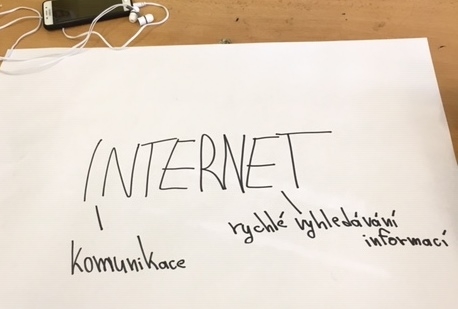 INTERNET
komunikace
rychlé vyhledávání
informací